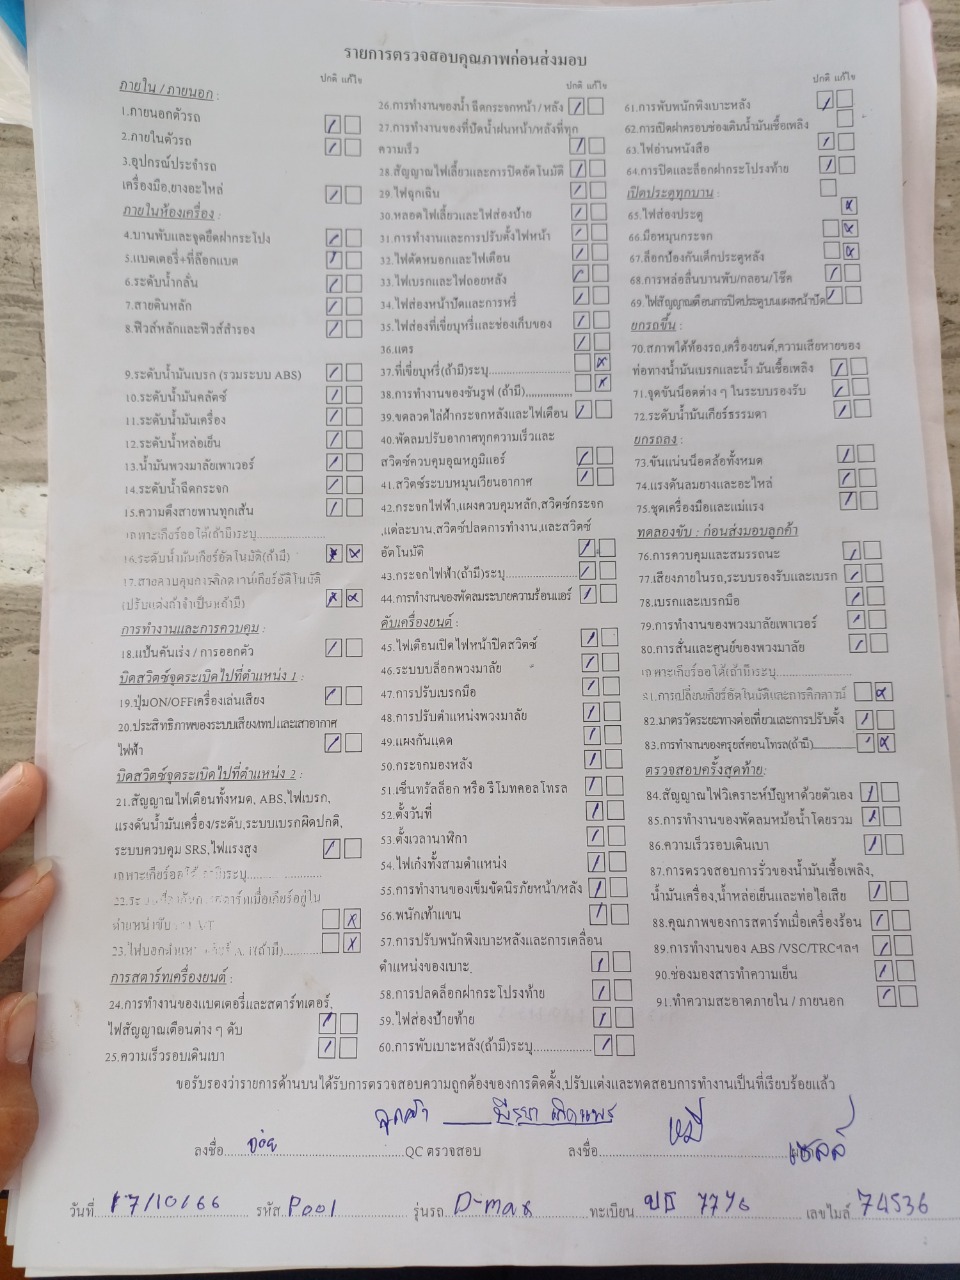 รายการตรวจสอบคุณภาพก่อนส่งมอบ
ปกติ แก้ไข
ภายใน / ภายนอก :
1.ภายนอกตัวรถ
2.ภายในตัวรถ
3.อุปกรณ์ประจำรถ
เครื่องมือ,ยางอะไหล่
ภายในห้องเครื่อง :
4.บานพับและจุดยึดฝากระโปง
5.แบตเตอรี่+ที่ล๊อกแบต
6.ระดับน้ำกลั่น
7.สายดินหลัก
8.ฟิวส์หลักและฟิวส์สำรอง
9.ระดับน้ำมันเบรก (รวมระบบ ABS)
10.ระดับน้ำมันคลัตซ์
11.ระดับน้ำมันเครื่อง
12.ระดับน้ำหล่อเย็น
13.น้ำมันพวงมาลัยเพาเวอร์
14.ระดับน้ำฉีดกระจก
15.ความตึงสายพานทุกเส้น
เฉพาะเกียร์ออโต้(ถ้ามี)ระบุ......................
16.ระดับน้ำมันเกียร์อัตโนมัติ(ถ้ามี)
17.สายควบคุมการคิกดาวน์เกียร์อัติโนมัติ
(ปรับแต่งถ้าจำเป็น)(ถ้ามี)
การทำงานและการควบคุม :
18.แป้นคันเร่ง / การออกตัว
บิดสวิตซ์จุดระเบิดไปที่ตำแหน่ง 1 :
19.ปุ่มON/OFFเครื่องเล่นเสียง
20.ประสิทธิภาพของระบบเสียงเทปและเสาอากาศ
ไฟฟ้า
บิดสวิตซ์จุดระเบิดไปที่ตำแหน่ง 2 :
21.สัญญาณไฟเตือนทั้งหมด, ABS,ไฟเบรก,
แรงดันน้ำมันเครื่อง/ระดับ,ระบบเบรกผิดปกติ,
ระบบควบคุม SRS,ไฟแรงสูง
การสตาร์ทเครื่องยนต์ :
24.การทำงานของแบตเตอรี่และสตาร์ทเตอร์,
ไฟสัญญาณเตือนต่าง ๆ ดับ
25.ความเร็วรอบเดินเบา
ปกติ แก้ไข
26.การทำงานของน้ำ ฉีดกระจกหน้า / หลัง
27.การทำงานของที่ปัดน้ำฝนหน้า/หลังที่ทุก
ความเร็ว
28.สัญญาณไฟเลี้ยวและการปิดอัตโนมัติ
29.ไฟฉุกเฉิน
30.หลอดไฟเลี้ยวและไฟส่องป้าย
31.การทำงานและการปรับตั้งไฟหน้า
32.ไฟตัดหมอกและไฟเตือน
33.ไฟเบรกและไฟถอยหลัง
34.ไฟส่องหน้าปัดและการหรี่
35.ไฟส่องที่เขี่ยบุหรี่และช่องเก็บของ
36.แตร
37.ที่เขี่ยบุหรี่(ถ้ามี)ระบุ......................
38.การทำงานของซันรูฟ (ถ้ามี)...............
39.ขดลวดไล่ฝ้ากระจกหลังและไฟเตือน
40.พัดลมปรับอากาศทุกความเร็วและ
สวิตซ์ควบคุมอุณหภูมิแอร์
41.สวิตซ์ระบบหมุนเวียนอากาศ
42.กระจกไฟฟ้า,แผงควบคุมหลัก,สวิตซ์กระจก
,แต่ละบาน,สวิตซ์ปลดการทำงาน,และสวิตซ์
อัตโนมัติ
43.กระจกไฟฟ้า(ถ้ามี)ระบุ......................
44.การทำงานของพัดลมระบายความร้อนแอร์
ดับเครื่องยนต์ :
45.ไฟเตือนเปิดไฟหน้าปิดสวิตซ์
46.ระบบบล็อกพวงมาลัย
47.การปรับเบรกมือ
48.การปรับตำแหน่งพวงมาลัย
49.แผงกันแดด
50.กระจกมองหลัง
51.เซ็นทรัลล็อก หรือรีโมทคอลโทรล
52.ตั้งวันที่
53.ตั้งเวลานาฬิกา
54.ไฟเก๋งทั้งสามตำแหน่ง
55.การทำงานของเข็มขัดนิรภัยหน้า/หลัง
56.พนักเท้าแขน
57.การปรับพนักพิงเบาะหลังและการเคลื่อน
ตำแหน่งของเบาะ
58.การปลดล็อกฝากระโปรงท้าย
59.ไฟส่องป้ายท้าย
60.การพับเบาะหลัง(ถ้ามี)ระบุ......................
ปกติ แก้ไข
61.การพับพนักพิงเบาะหลัง
62.การเปิดฝาครอบช่องเติมน้ำมันเชื้อเพลิง
63.ไฟอ่านหนังสือ
64.การปิดและล็อกฝากระโปรงท้าย
เปิดประตูทุกบาน :
65.ไฟส่องประตู
66.มือหมุนกระจก
67.ล็อกป้องกันเด็กประตูหลัง
68.การหล่อลื่นบานพับ/กลอน/ โช๊ค
69.ไฟสัญญาณเตือนการปิดประตูบนแผงหน้าปัด
ยกรถขึ้น :
70.สภาพใต้ท้องรถ,เครื่องยนต์,ความเสียหายของ
ท่อทางน้ำมันเบรกและน้ำ มันเชื้อเพลิง
71.จุดขันน็อตต่าง ๆ ในระบบรองรับ
72.ระดับน้ำมันเกียร์ธรรมดา
ยกรถลง :
73.ขันแน่นน็อตล้อทั้งหมด
74.แรงดันลมยางและอะไหล่
75.ชุดเครื่องมือและแม่แรง
ทดลองขับ : ก่อนส่งมอบลูกค้า
76.การควบคุมและสมรรถนะ
77.เสียงภายในรถ,ระบบรองรับและเบรก
78.เบรกและเบรกมือ
79.การทำงานของพวงมาลัยเพาเวอร์
80.การสั่นและศูนย์ของพวงมาลัย
เฉพาะเกียร์ออโต้(ถ้ามี)ระบุ......................
81.การเปลี่ยนเกียร์อัตโนมัติและการคิกดาวน์
82.มาตรวัดระยะทางต่อเที่ยวและการปรับตั้ง
83.การทำงานของครูยส์คอนโทรล(ถ้ามี)............
ตรวจสอบครั้งสุดท้าย:
84.สัญญาณไฟวิเคราะห์ปัญหาด้วยตัวเอง
85.การทำงานของพัดลมหม้อน้ำโดยรวม
86.ความเร็วรอบเดินเบา
87.การตรวจสอบการรั่วของน้ำมันเชื้อเพลิง,
น้ำมันเครื่อง,น้ำหล่อเย็นและท่อไอเสีย
88.คุณภาพของการสตาร์ทเมื่อเครื่องร้อน
89.การทำงานของ ABS /VSC/TRCฯลฯ
90.ช่องมองสารทำความเย็น
91.ทำความสะอาดภายใน / ภายนอก
ขอรับรองว่ารายการด้านบนได้รับการตรวจสอบความถูกต้องของการติดตั้ง,ปรับแต่งและทดสอบการทำงานเป็นที่เรียบร้อยแล้ว
ลูกค้า
ลงชื่อ...........QC ตรวจสอบ ลงชื่อ........... เซลล์
วันที่ 17/10/66 รหัส P001 รุ่นรถ D-max ทะเบียน 7776 เลขไมล์ 74536